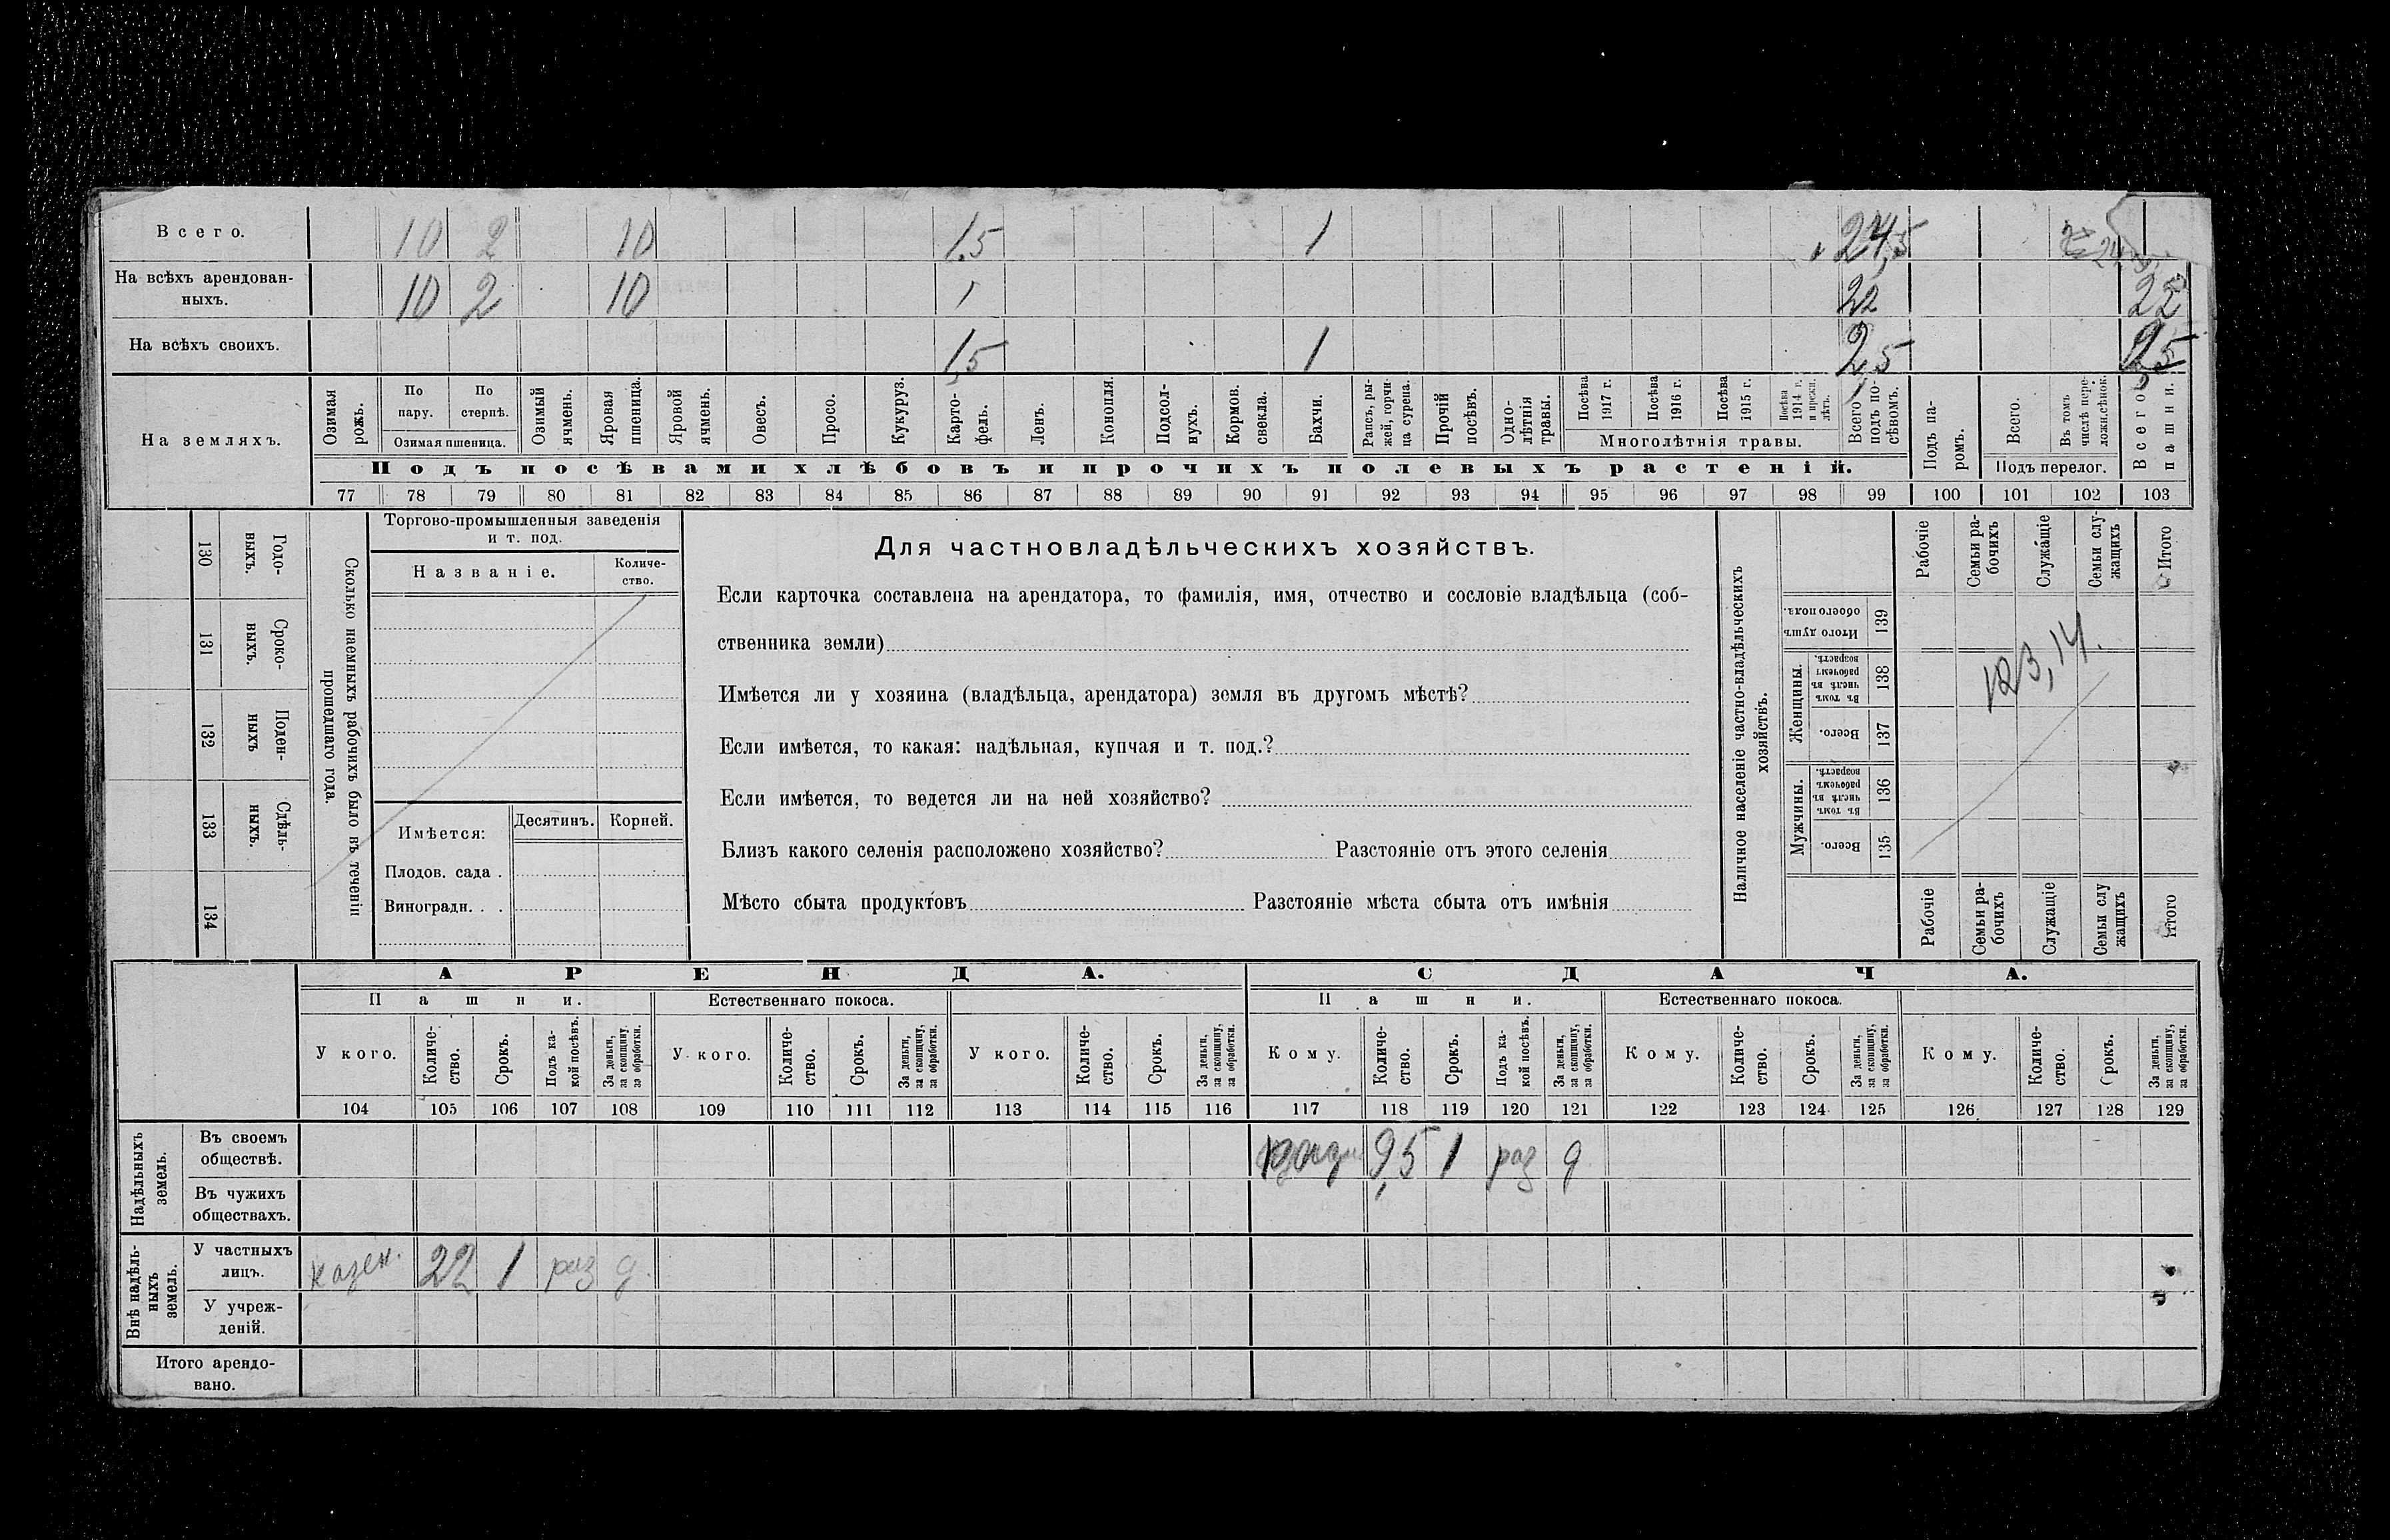 Всего. 10 2 10 1,5 1 24,5
На всѣхъ арендован-
ныхъ. 10 2 10 22 22
На всѣхъ своихъ. 1,5 1 2,5 2,5
На земляхъ.
Озимая рожь.
По пару.
По стернѣ.
Озимая пшеница.
Озимый ячмень.
Яровая пшеница.
Яровой ячмень.
Овесъ.
Просо.
Кукуруз.
Карто-
фель.
Ленъ.
Конопля.
Подсол-
нухъ.
Кормов.
свекла.
Бахчи.
Рапсъ, ры-
жей, горчи-
ца сурепа.
Прочій
посѣвъ.
Одно-
лѣтнія
травы.
Посѣва
1917 г.
Посѣва
1916 г.
Посѣва
1915 г.
Посѣва
1914 г.
и прежн.
лѣтъ.
Многолѣтнія травы.
Всего
подъ по-
сѣвомъ.
Подъ па-
ромъ.
Всего.
Въ томъ
числѣ пере-
ложн.сѣнок.
Подъ перелог.
Всего
пашни.
Подъ посѣвами хлѣбовъ и прочихъ полевыхъ растеній.
77 78 79 80 81 82 83 84 85 86 87 88 89 90 91 92 93 94 95 96 97 98 99 100 101 102 103
130 Годо-
выхъ.
131 Сроко-
выхъ.
132 Поден-
ныхъ
133 Сдѣль-
ныхъ.
134
Сколько наемныхъ рабочихъ было въ теченіи
прошедшаго года.
Торгово-промышленныя заведенія
и т. под.
Названіе.
Количе-
ство.
Имѣется:
Десятинъ. Корней.
Плодов. сада .
Виноградн. . .
Для частновладѣльческихъ хозяйствъ.
Если карточка составлена на арендатора, то фамилія, имя, отчество и сословіе владѣльца (соб-
ственника земли)
Имѣется ли у хозяина (владѣльца, арендатора) земля въ другомъ мѣстѣ?
Если имѣется, то какая: надѣльная, купчая и т. под.?
Если имѣется, то ведется ли на ней хозяйство?
Близъ какого селенія расположено хозяйство? Разстояніе отъ этого селенія
Мѣсто сбыта продуктовъ Разстояніе мѣста сбыта отъ имѣнія
Наличное населеніе частно-владѣльческихъ
хозяйствъ.
Рабочіе
Семьи ра-
бочихъ
Служащіе
Семьи слу-
жащихъ
Итого
Итого душъ
обоего пола.
139
Женщины.
Въ томъ
числѣ въ
рабочемъ
возрастѣ.
138
Всего.
137
Мужчины.
Въ томъ
числѣ въ
рабочемъ
возрастѣ.
136
Всего.
135
Рабочіе
Семьи ра-
бочихъ
Служащіе
Семьи слу
жащихъ
Итого
АРЕНДА. СДАЧА.
Пашни. Естественнаго покоса. Пашни. Естественнаго покоса.
У кого.
Количе-
ство.
Срокъ.
Подъ ка-
кой посѣвъ.
За деньги,
за скопщину,
за обработки.
У кого.
Количе-
ство.
Срокъ.
За деньги,
за скопщину,
за обработки.
У кого.
Количе-
ство.
Срокъ.
За деньги,
за скопщину,
за обработки.
Кому.
Количе-
ство.
Срокъ.
Подъ ка-
кой посѣвъ.
За деньги,
за скопщину,
за обработки.
Кому.
Количе-
ство.
Срокъ.
За деньги,
за скопщину,
за обработки.
Кому.
Количе-
ство.
Срокъ.
За деньги,
за скопщину,
за обработки.
104 105 106 107 108 109 110 111 112 113 114 115 116 117 118 119 120 121 122 123 124 125 126 127 128 129
Надѣльныхъ
земель.
Въ своемъ
обществѣ. 9,5 1 раз д
Въ чужихъ
обществахъ.
Внѣ надѣль-
ныхъ
земель.
У частныхъ
лицъ. казен. 22 1 раз д.
У учреж-
деній.
Итого арендо-
вано.